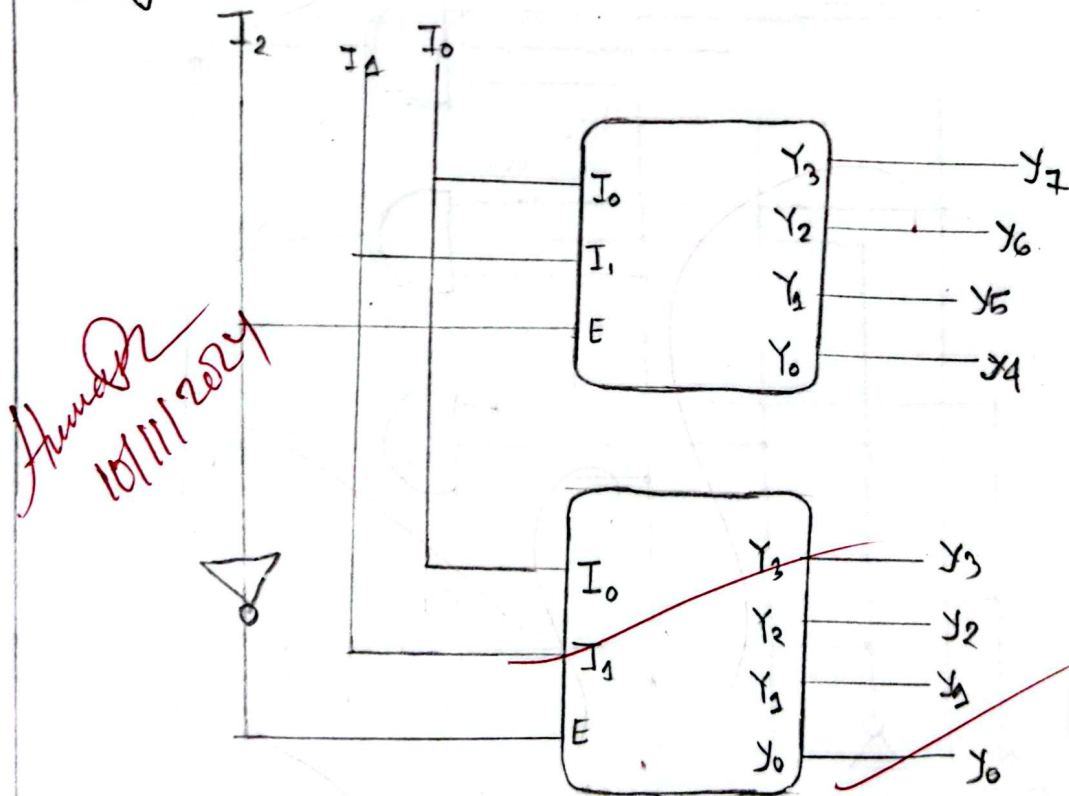 I2 I1 I0
I0 Y3 Y7
I1 Y2 Y6
E Y1 Y5
Y0 Y4
10/11/2024
I0 Y3 Y3
I1 Y2 Y2
Y1 Y1
E Y0 Y0